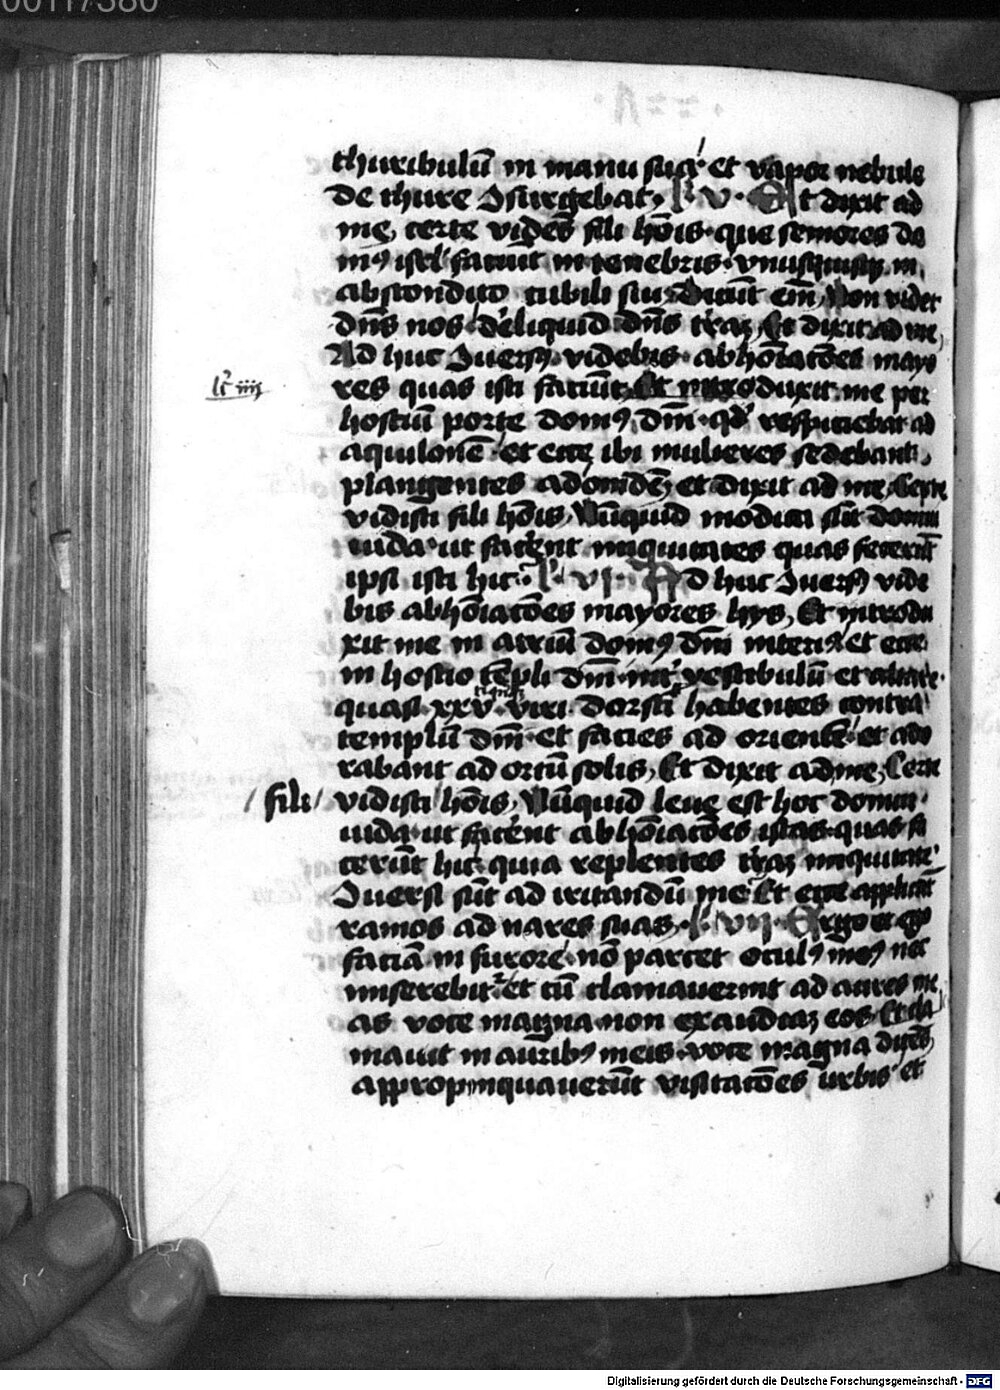 thuribulū in manu sua et vapor nebule
de thure ɔsurgebat. lc v. Et dixit ad
me, certe vides fili hōis que seniores do
mꝰ isrl faciūt in tenebris. vnusquisqꝫ in
abscondito cubili sui. Dicūt em̄ Non videt
dn̄s nos deliquid dn̄s t̄raꝫ Et dixit ad me,
Ad huc ɔuersꝰ videbis abhōiatōes mayo
lc iiii
res quas isti faciūt, Et introduxit me per
hostiū porte domꝰ dn̄i qd respiciebat ad
aquilonē et ecce ibi mulieres sedebant
plangentes adonidē et dixit ad me, Certe
vidisti fili hōis, Nūquid modicū sūt domui
iuda ut facēnt iniquitates quas fecerūt
ipsi isti hic. lc vi. Ad huc ɔuersꝰ vide
bis abhōiatōes mayores hys, Et introdu
xit me in atriū domꝰ dn̄i interiꝰ et ecce
in hostio tēpli dn̄i int vestibulū et altare
quasi xxv viri dorsū habentes contra
templū dn̄i et facies ad orientē et ado
rabant ad ortū solis, Et dixit ad me, Certe
/ fili / vidisti / hōis, Nūquid leue est hoc domui
iuda ut facēnt abhōiatōes istas quas fe
cerūt hic quia replentes t̄raꝫ iniquitate
ɔuersi sūt ad iritandū me Et ecce applicāt
ramos ad nares suas. lc vii. Ergo et ego
faciā in furore nō parcet oculꝰ meꝰ nec
miserebit et cū clamauerint ad aures me
as voce magna non exaudiaꝫ eos Et cla
mauit in auribꝰ meis voce magna dices
appropinquauerūt visitatōes urbis et
Digitalisierung gefördert durch die Deutsche Forschungsgemeinschaft - DFG